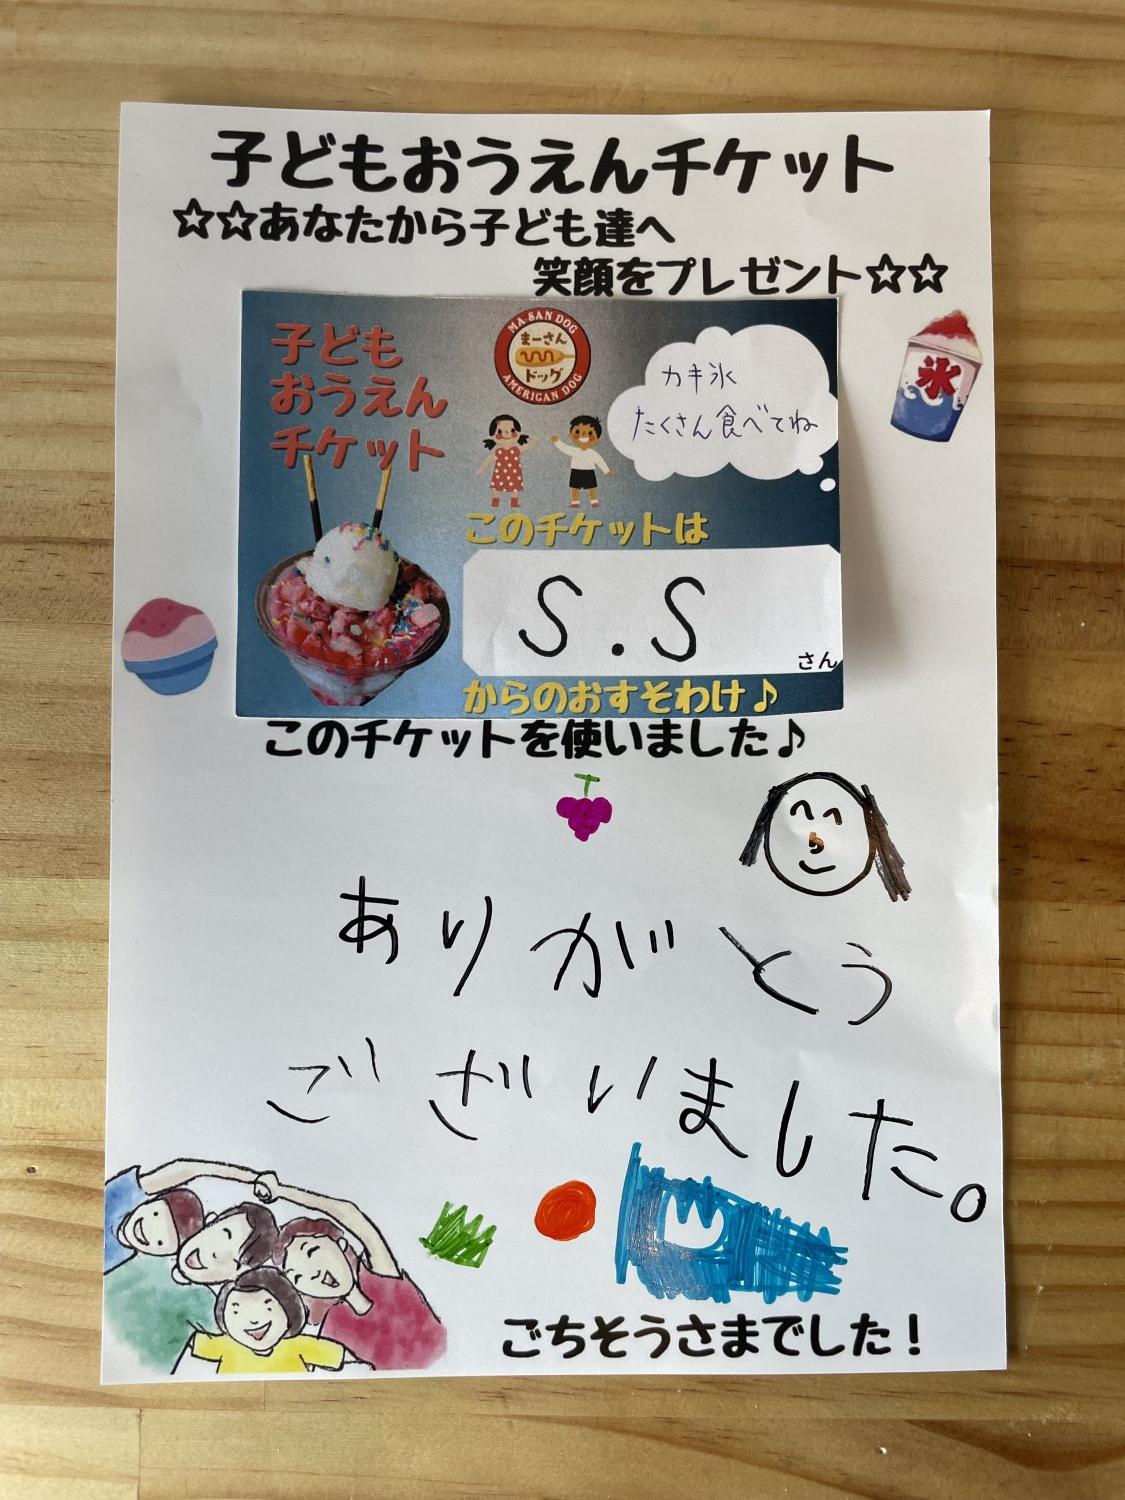 子どもおうえんチケット
☆☆あなたから子ども達へ
笑顔をプレゼント☆☆
子ども
おうえん
チケット
MA-SAN DOG
まーさん
ドッグ
AMERICAN DOG
カキ氷
たくさん食べてね
氷
このチケットは
S.S
さん
からのおすそわけ♪
このチケットを使いました♪
ありがとう
ございました。
ごちそうさまでした！